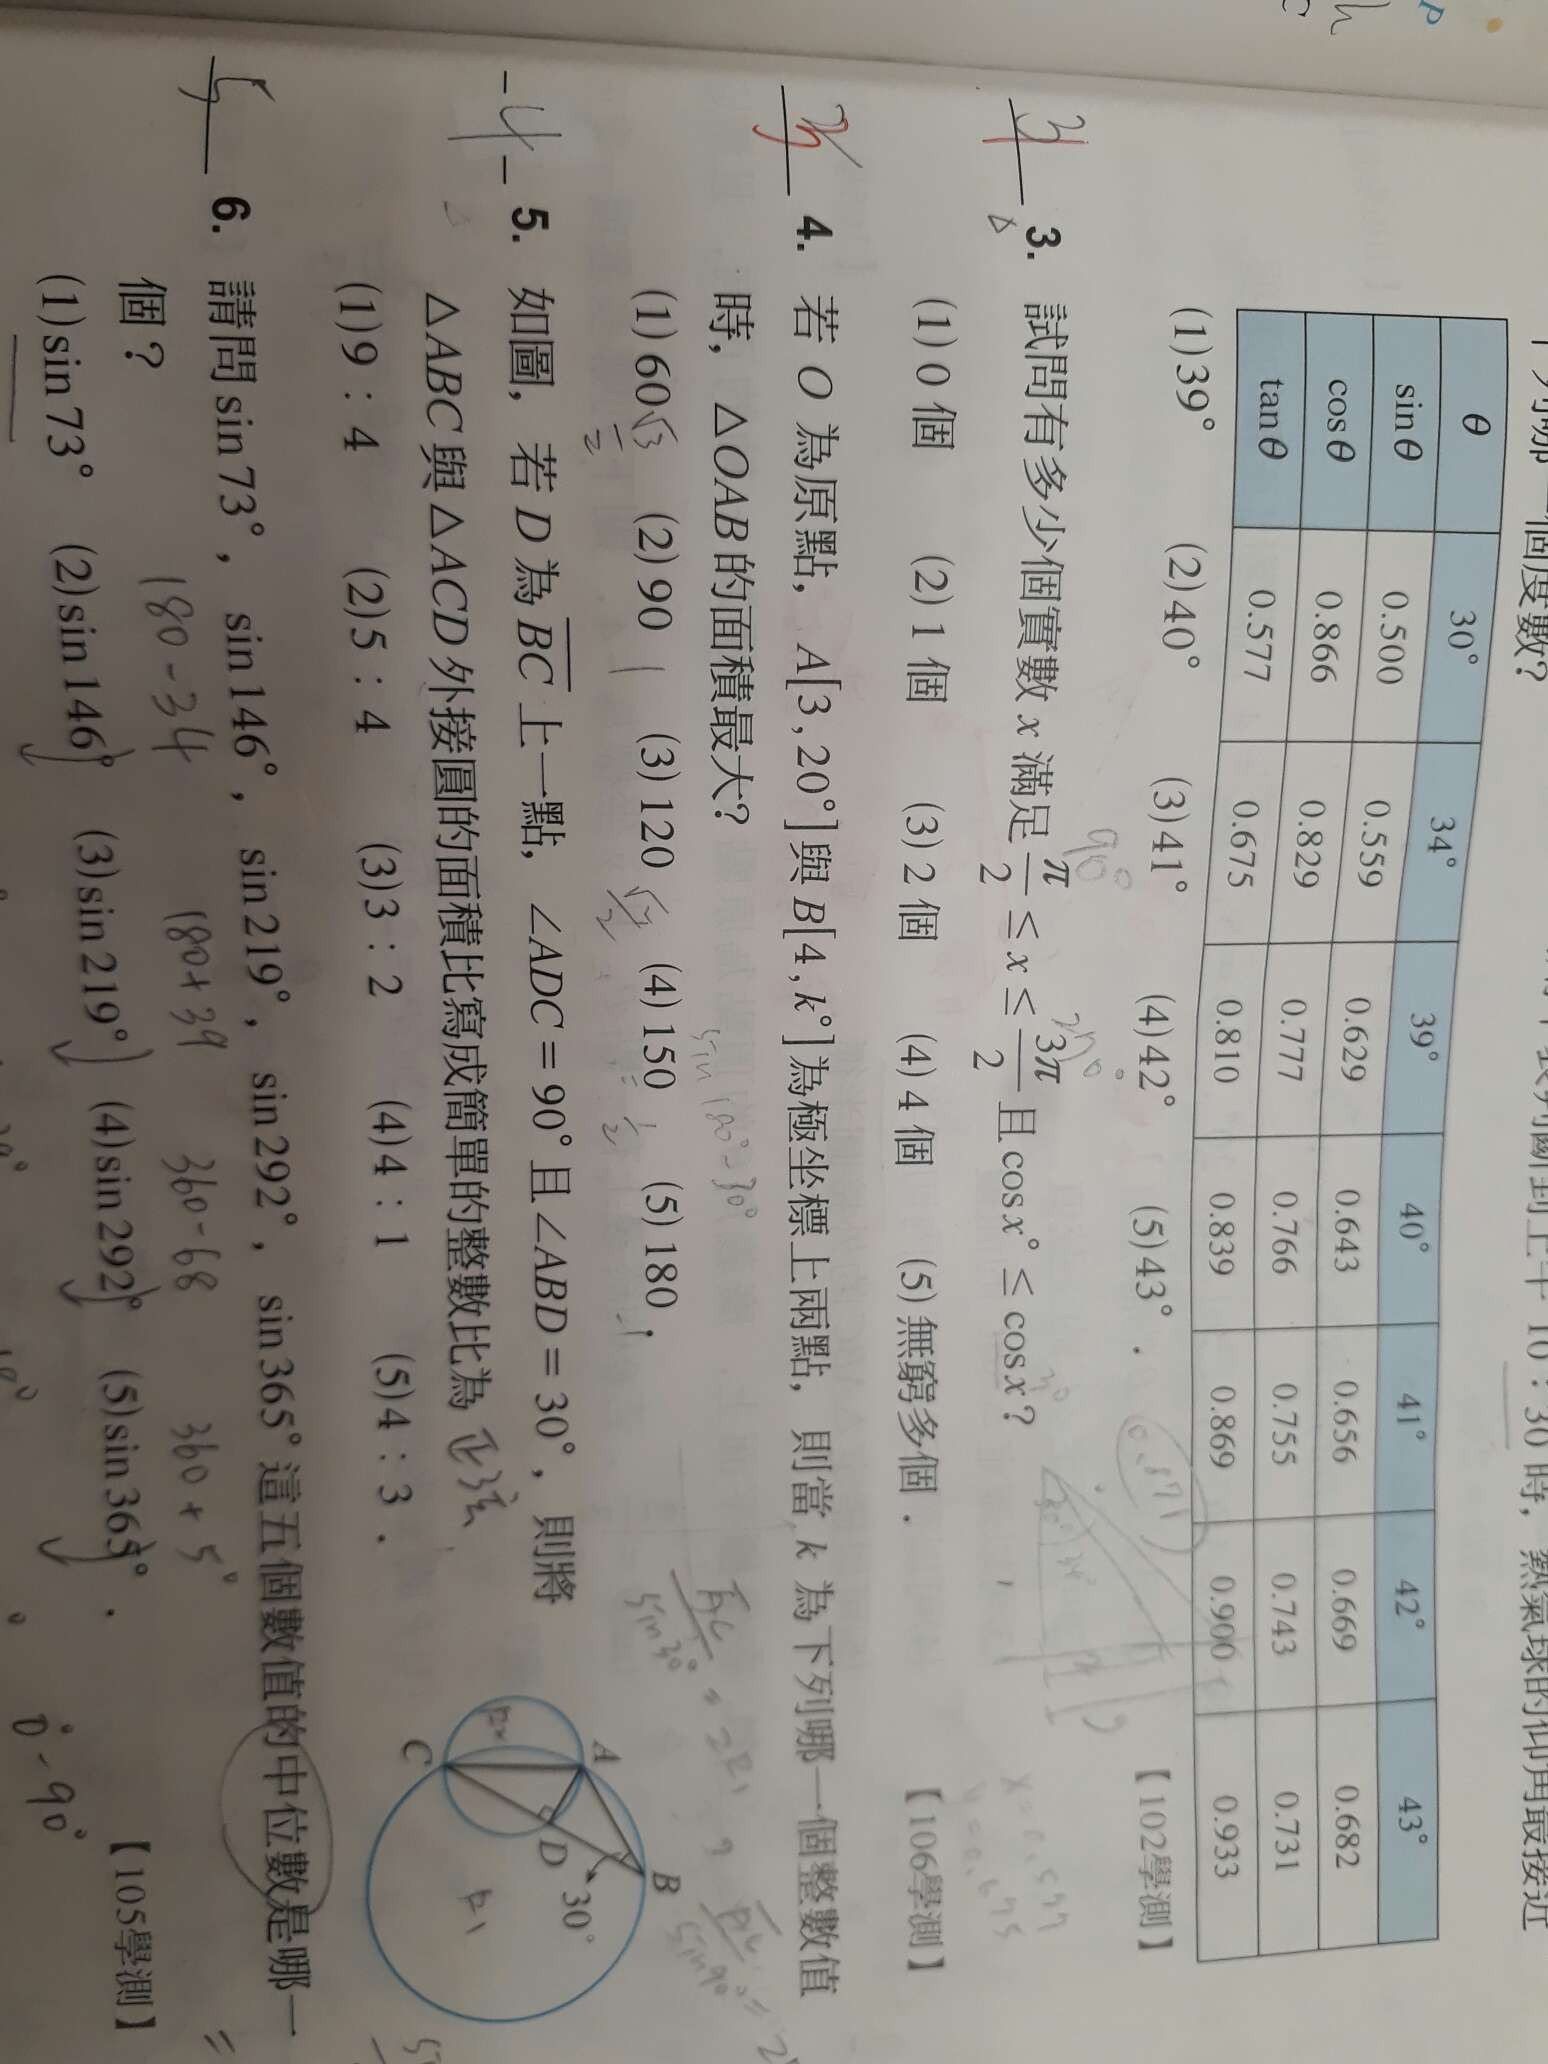 個度數?
10:30時，熱氣球的仰角最接近
θ 30° 34° 39° 40° 41° 42° 43°
sinθ 0.500 0.559 0.629 0.643 0.656 0.669 0.682
cosθ 0.866 0.829 0.777 0.766 0.755 0.743 0.731
tanθ 0.577 0.675 0.810 0.839 0.869 0.900 0.933
(1)39° (2)40° (3)41° (4)42° (5)43°． 【102學測】
3. 試問有多少個實數 x 滿足 π/2 ≤ x ≤ 3π/2 且 cos x° ≤ cos x?
90°
(1) 0 個 (2) 1 個 (3) 2 個 (4) 4 個 (5) 無窮多個． 【106學測】
4. 若 O 為原點，A[3,20°]與 B[4,k°]為極坐標上兩點，則當 k 為下列哪一個整數值
時，△OAB 的面積最大?
sin180°-30°
(1) 60 (2) 90 (3) 120 (4) 150 (5) 180．
5. 如圖，若 D 為 BC 上一點，∠ADC = 90° 且 ∠ABD = 30°，則將
△ABC 與 △ACD 外接圓的面積比寫成簡單的整數比為
(1)9：4 (2)5：4 (3)3：2 (4)4：1 (5)4：3．
A
B
C
D
30°
6. 請問 sin73°，sin146°，sin219°，sin292°，sin365° 這五個數值的中位數是哪一
個？
180-34 180+39 360-68 360+5°
(1)sin73° (2)sin146° (3)sin219° (4)sin292° (5)sin365°． 【105學測】
0°-90°